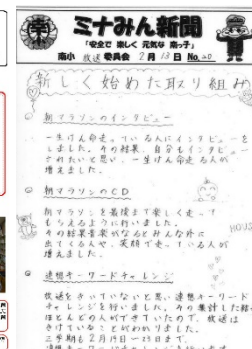 ミナみん新聞
「安全で 楽しく 元気な 南っ子」
南小 放送 委員会 2月13日 No.20
新しく始めた取り組み
朝マラソンのインタビュー
一生けん命走っている人にインタビューを
しました。その結果、自分もインタビュー
されたいと思い、一生けん命走る人が
増えました。
朝マラソンのCD
朝マラソンを最後まで楽しく走って
もらえるように行いました。
その結果音楽がなるとみんな外に
出てくる人や、笑顔で走っている人が
増えました。
連想キーワードチャレンジ
放送をきいていないと思い、連想キーワード
チャレンジを行いました。今の集計した結
ほとんどの人ができていたので、放送は
きけていることがわかりました。
三学期も2月19日～23日まで、